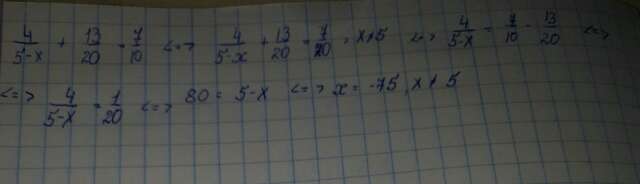 4/(5-x) + 13/20 = 7/10 <=> 4/(5-x) + 13/20 = 7/20, x≠5 <=> 4/(5-x) = 7/10 - 13/20 <=>
<=> 4/(5-x) = 1/20 <=> 80 = 5-x <=> x = -75, x≠5